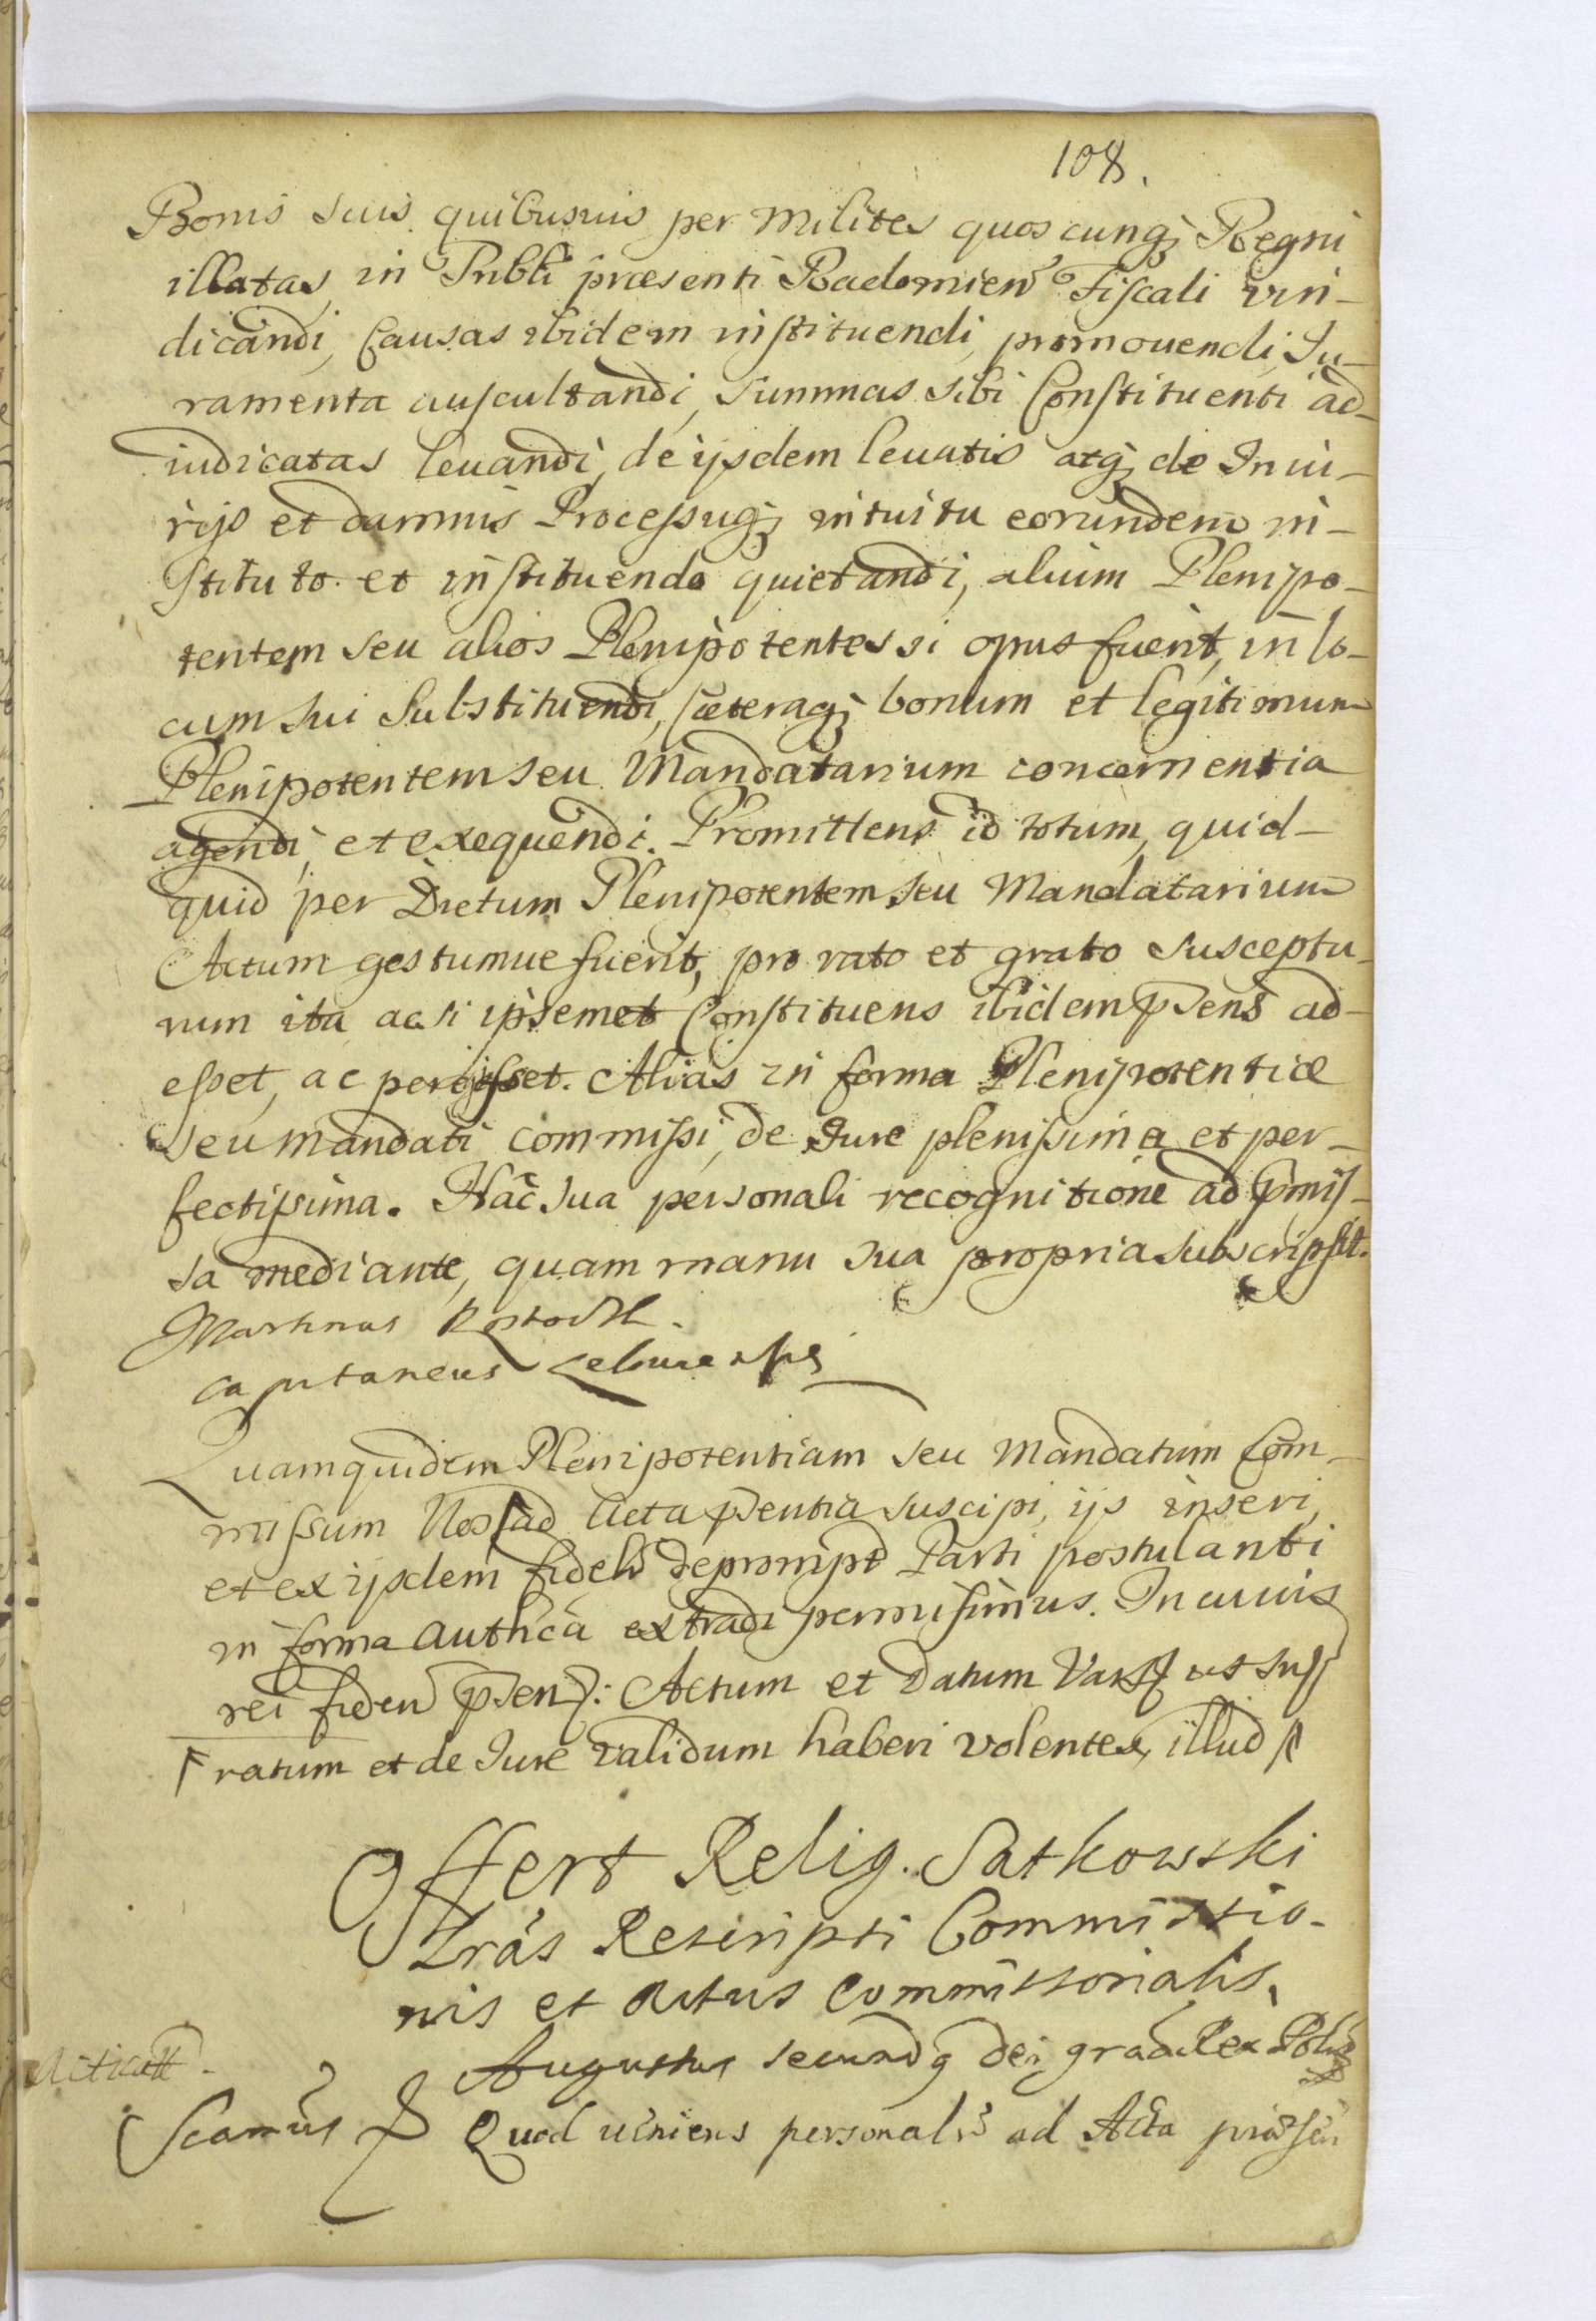 108.
Bonis suis quibusvis per Milites quoscunq; Regni
illatas, in Tribli præsenti Radomien Fiscali vin-
dicandi, Causas ibidem instituendi, promouendi, Iu-
ramenta auscultandi, summas sibi Constituenti ad-
iudicatas leuandi, de ijsdem leuatis atq; de Iniu-
rijs et damnis Processuq; intuitu eorundem in-
stituto et instituendo quietandi, alium Plenipo-
tentem seu alios Plenipotentes si opus fuerit, in lo-
cum sui Substituendi, Cæteraq; bonum et legitimum
Plenipotentem seu Mandatarium concernentia
agendi, et exequendi. Promittens id totum, quid-
quid per Dictum Plenipotentem seu Mandatarium
Actum gestumue fuerit, pro rato et grato susceptu-
rum ita ac si ipsemet Constituens ibidem psens ad-
esset, ac peregisset. Alias in forma Plenipotentiæ
seu Mandati commissi, de Iure plenissima et per-
fectissima. Hac sua personali recognitione ad pmis-
sa mediante, quam manu sua propria subscripsit.
Martinus
Capitaneus
Quamquidem Plenipotentiam seu Mandatum Com-
missum Nos ad Acta psentia suscipi, ijs inseri,
et ex ijsdem fideli deprompt Parti postulanti
in forma authca extradi permisimus. In cuius
rei fidem psen: Actum et Datum Vars ut sup
ratum et de Iure validum haberi volentes, illud
Offert Relig. Satkowski
Lrás Rescripti Commissio-
nis et Actus Commissorialis.
Augustus secundg Dei gra Rex Polo
Acticatt.
Scamus Quod veniens personalr ad Acta præsen